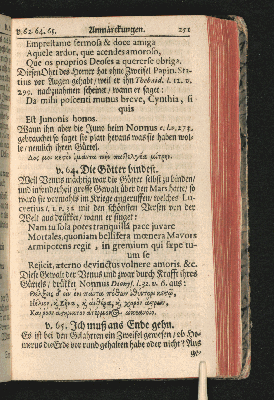 v. 62. 64. 65. Anmärckungen. 251
Emprestame fermosa & doce amiga
Aquelle ardor, que acendes amorosn,
Que os proprios Deoses a querer se obriga.
Diesen Ohrt des Homer hat ohne Zweifel Papin. Sta-
tius vor Augen gehabt/ weil er ihn Thebaid. l. 12. v.
290. nachzuahmen scheint/ wann er saget:
Da mihi poscenti munus breve, Cynthia, si
quis
Est Junonis honos.
Wann ihn aber die Juno beym Nonnus l. v. 275.
gebrauchet so saget sie platt heraus was sie haben wol-
le/ nemlich ihren Gürtel.
v. 64. Die Götter bindest.
Weil Venus mächtig war die Götter selbst zu binden/
und insonderheit grosse Gewalt über den Mars hatte; so
ward sie vormahls im Kriege angeruffen/ welches Lu-
cretius l. 1. v. 32 mit den schönsten Versen von der
Welt ausdrücket/ wann er singet:
Nam tu sola potes tranquilla pace juvare
Mortales, quoniam belli fera moenera Mavors
Armipotens regit, in gremium qui sæpe tu-
um se
Rejicit, æterno devinctus volnere amoris. &c.
Diese Gewalt der Venus und zwar durch Krafft ihres
Gürtels/ drücket Nonnus Dionys. l. 32. v. 6. aus:
v. 65. Ich muß ans Ende gehn.
Es ist bey den Gelährten ein Zweifel gewesen/ ob Ho-
merus die Erde vor rund gehalten habe oder nicht? Aus